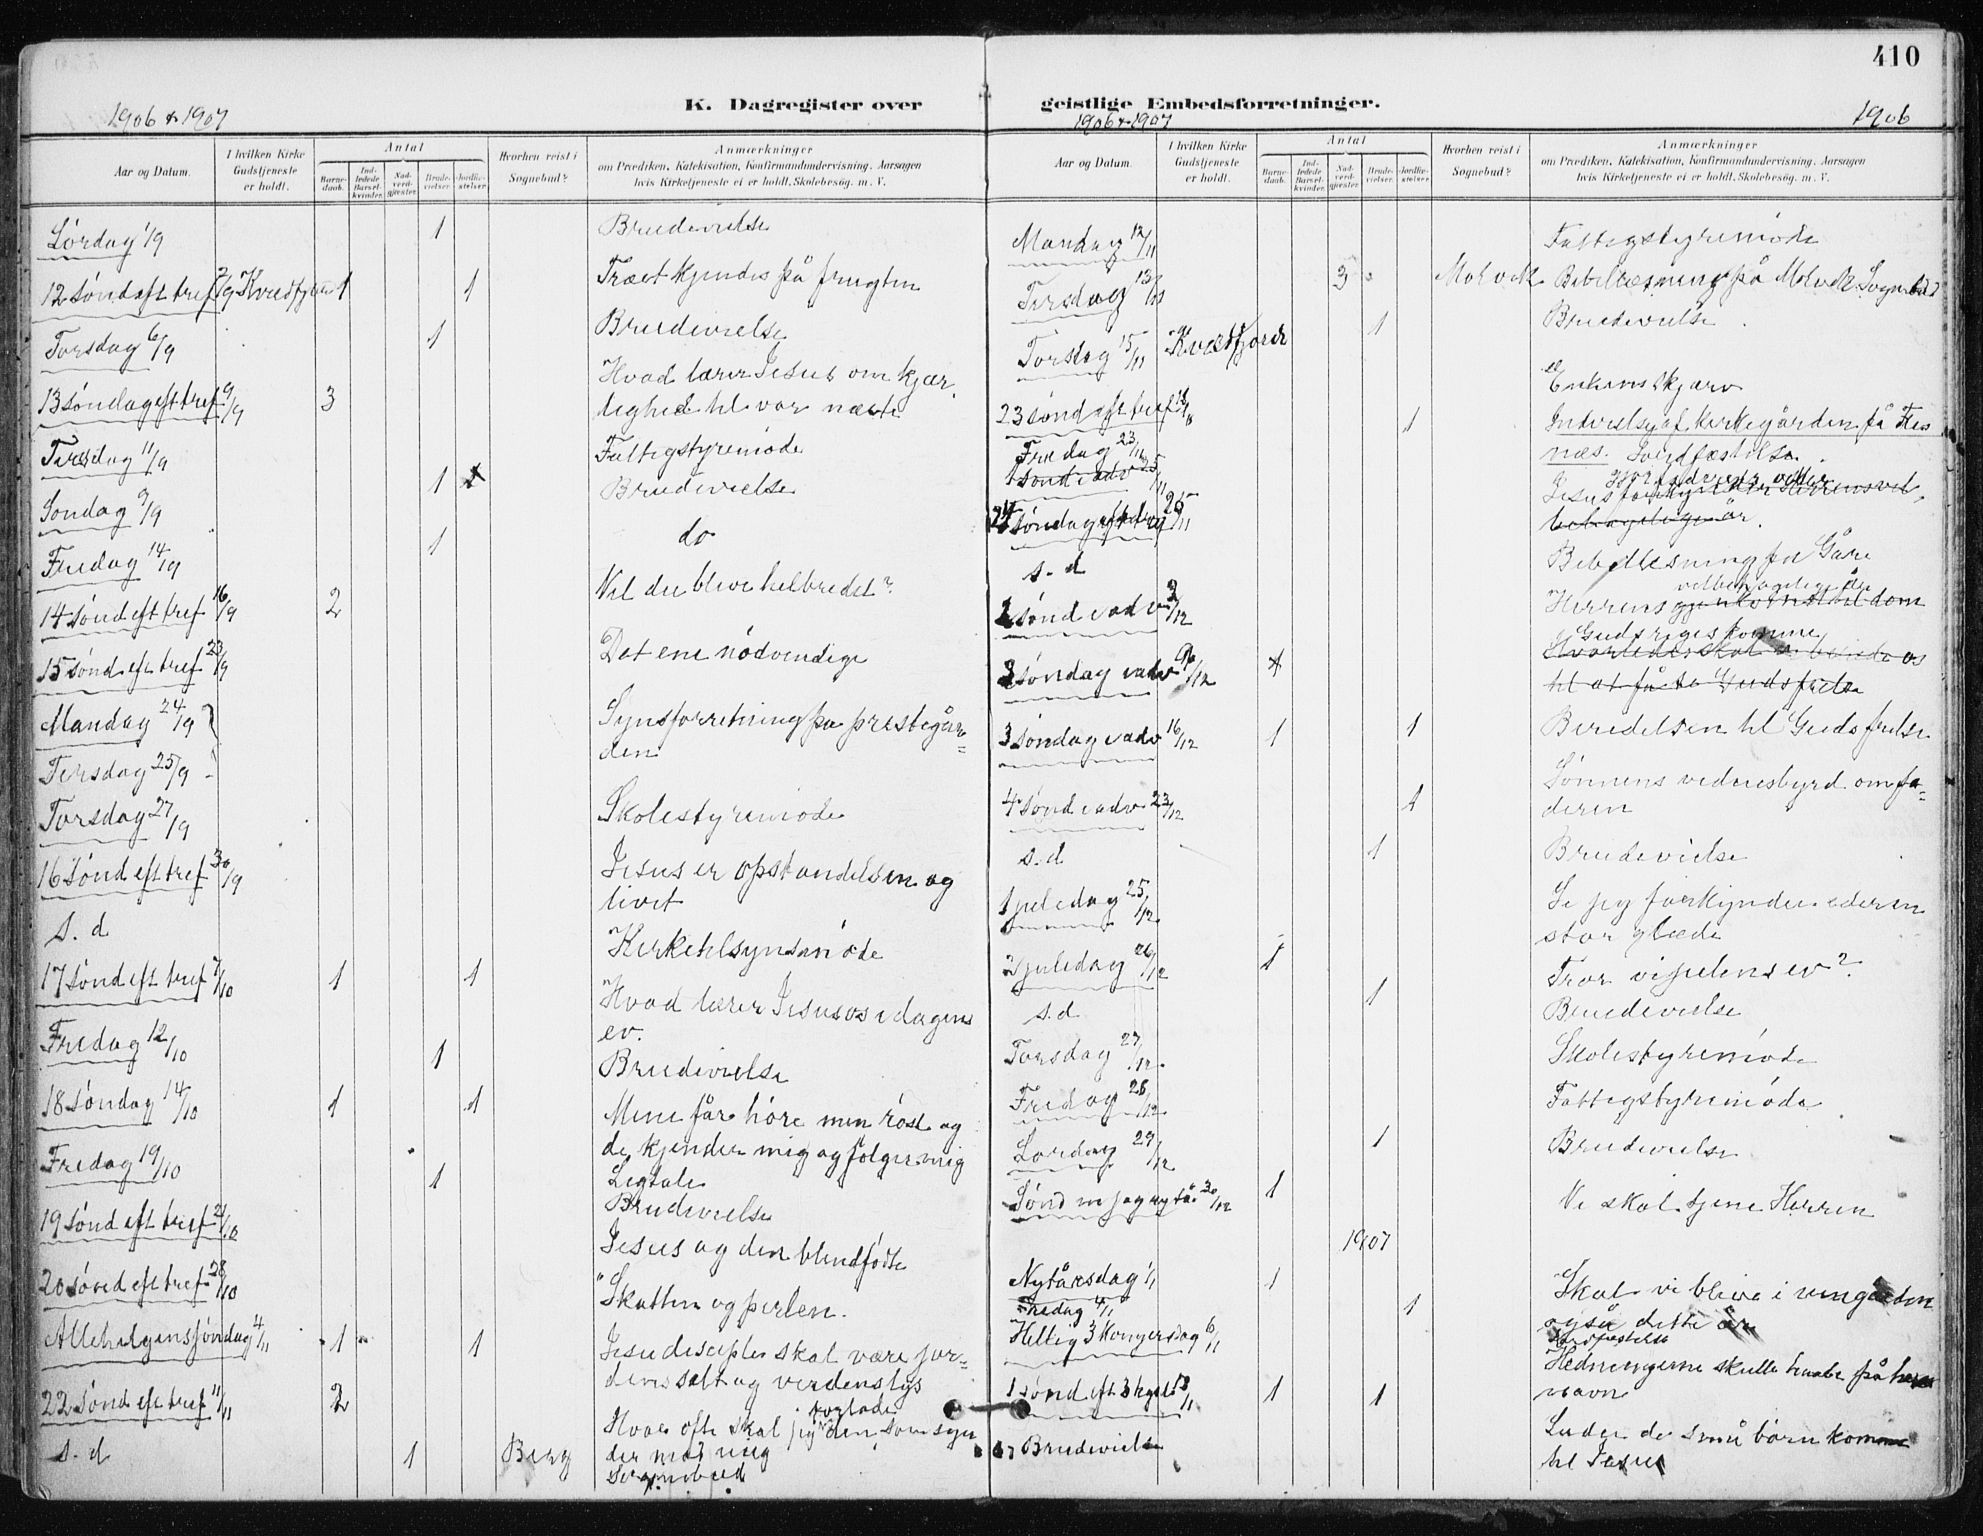 410
K. Dagregister over geistlige Embedsforretninger.
1906 & 1907
1906 & 1907
1906
Aar og Datum.
I hvilken Kirke Gudstjeneste er holdt.
Antal
Barnedaab.
Indledede Barselkvinder.
Nadverdgjester.
Brudevielser.
Jordfæstelser.
Hvorhen reist i Sognebud?
Anmærkninger
om Prædiken, Katekisation, Konfirmandundervisning. Aarsagen
hvis Kirketjeneste ei er holdt. Skolebesøg. m. V.
Lørdag 1/9 1 Brudevielse
12 sønd eft tref 2/9 Kvedfjord 1 1 Træet kjendes på frugten
Torsdag 6/9 1 Brudevielse
13 søndag eft tref 9/9 3 Hvad lærer Jesus om kjær-
lighed til vor næste
Tirsdag 11/9 Fattigstyremöde
Søndag 9/9 1 Brudevielse
Fredag 14/9 1 do
14 sønd eft tref 16/9 2 Vil du blive helbredet?
15 sønd eft tref 23/9 Det ene nödvendige
Mandag 24/9 Synsforretning på prestegår-
den
Tirsdag 25/9
Torsdag 27/9 Skolestyremöde
16 sönd eft tref 30/9 Jesus er opstandelsen og
livet
s. d Kirketilsynsmöde
17 sönd eft tref 7/10 1 1 Hvad lærer Jesus os i dagens
ev.
Fredag 12/10 1 Brudevielse
18 Söndag 14/10 1 1 Mine får höre min röst og
de kjender mig og fölger mig
Fredag 19/10 Ligtale
1 Brudevielse
19 sönd eft tref 21/10 Jesus og den blindfödte
20 sönd eft tref 28/10 Skatten og perlen.
Allehelgensöndag 4/11 1 1 Jesu disciple skal være jor-
dens salt og verdens lys
22 Sönd eft tref 11/11 2 Hvor ofte skal jeg forlade den som syn
der mod mig
s. d 1 Berg Sognebud
Aar og Datum.
I hvilken Kirke Gudstjeneste er holdt.
Antal
Barnedaab.
Indledede Barselkvinder.
Nadverdgjester.
Brudevielser.
Jordfæstelser.
Hvorhen reist i Sognebud?
Anmærkninger
om Prædiken, Katekisation, Konfirmandundervisning. Aarsagen
hvis Kirketjeneste ei er holdt. Skolebesøg. m. V.
Mandag 12/11 Fattigstyremöde
Tirsdag 13/11 3 Molvik Bibellæsning på Molvik Sognebud
Torsdag 15/11 Kvedfjord 1 Brudevielse
Enkens skjærv
23 sönd eft tref 18/11 1 Indvielse af kirkegården på Fles
næs. Jordfæstelse
Fredag 23/11
1 sönd i adv 25/11
Jesus forkynder Herrens vel
behagelige år.
24 söndag eft tref 25/11
s. d Bibellæsning på Gåre
1 sönd i adv 2/12 Herrens velbehagelige år
gjenkomst til dom
2 söndag i adv 9/12 Guds riges komme
Hvorledes skal vi berede os
til at få se Guds frelse
3 söndag i adv 16/12 1 1 Beredelsen til Guds frelse
4 sönd i adv 23/12 1 Sönnens vidnesbyrd om fa-
deren
s. d 1 Brudevielse
1 juledag 25/12 Se jeg forkynder eder en
stor glæde
2 juledag 26/12 1 Tror vi julens ev?
s. d 1 Brudevielse
Torsdag 27/12 Skolestyremöde
Fredag 28/12 Fattigstyremöde
Lördag 29/12 1 Brudevielse
Sönd m jag nytå 30/12 1 Vi skal tjene Herren
1907
Nytårsdag 1/1 1 Skal vi blive i vingården
også dette år
Fredag 4/1 1 Jordfæstelse
Hellig 3 Kongersdag 6/1 Hedningerne skulle haabe på hans
navn
1 sönd eft 3 kgd 13/1 1 1 Lader de små börn komme
til Jesus
Brudevielse